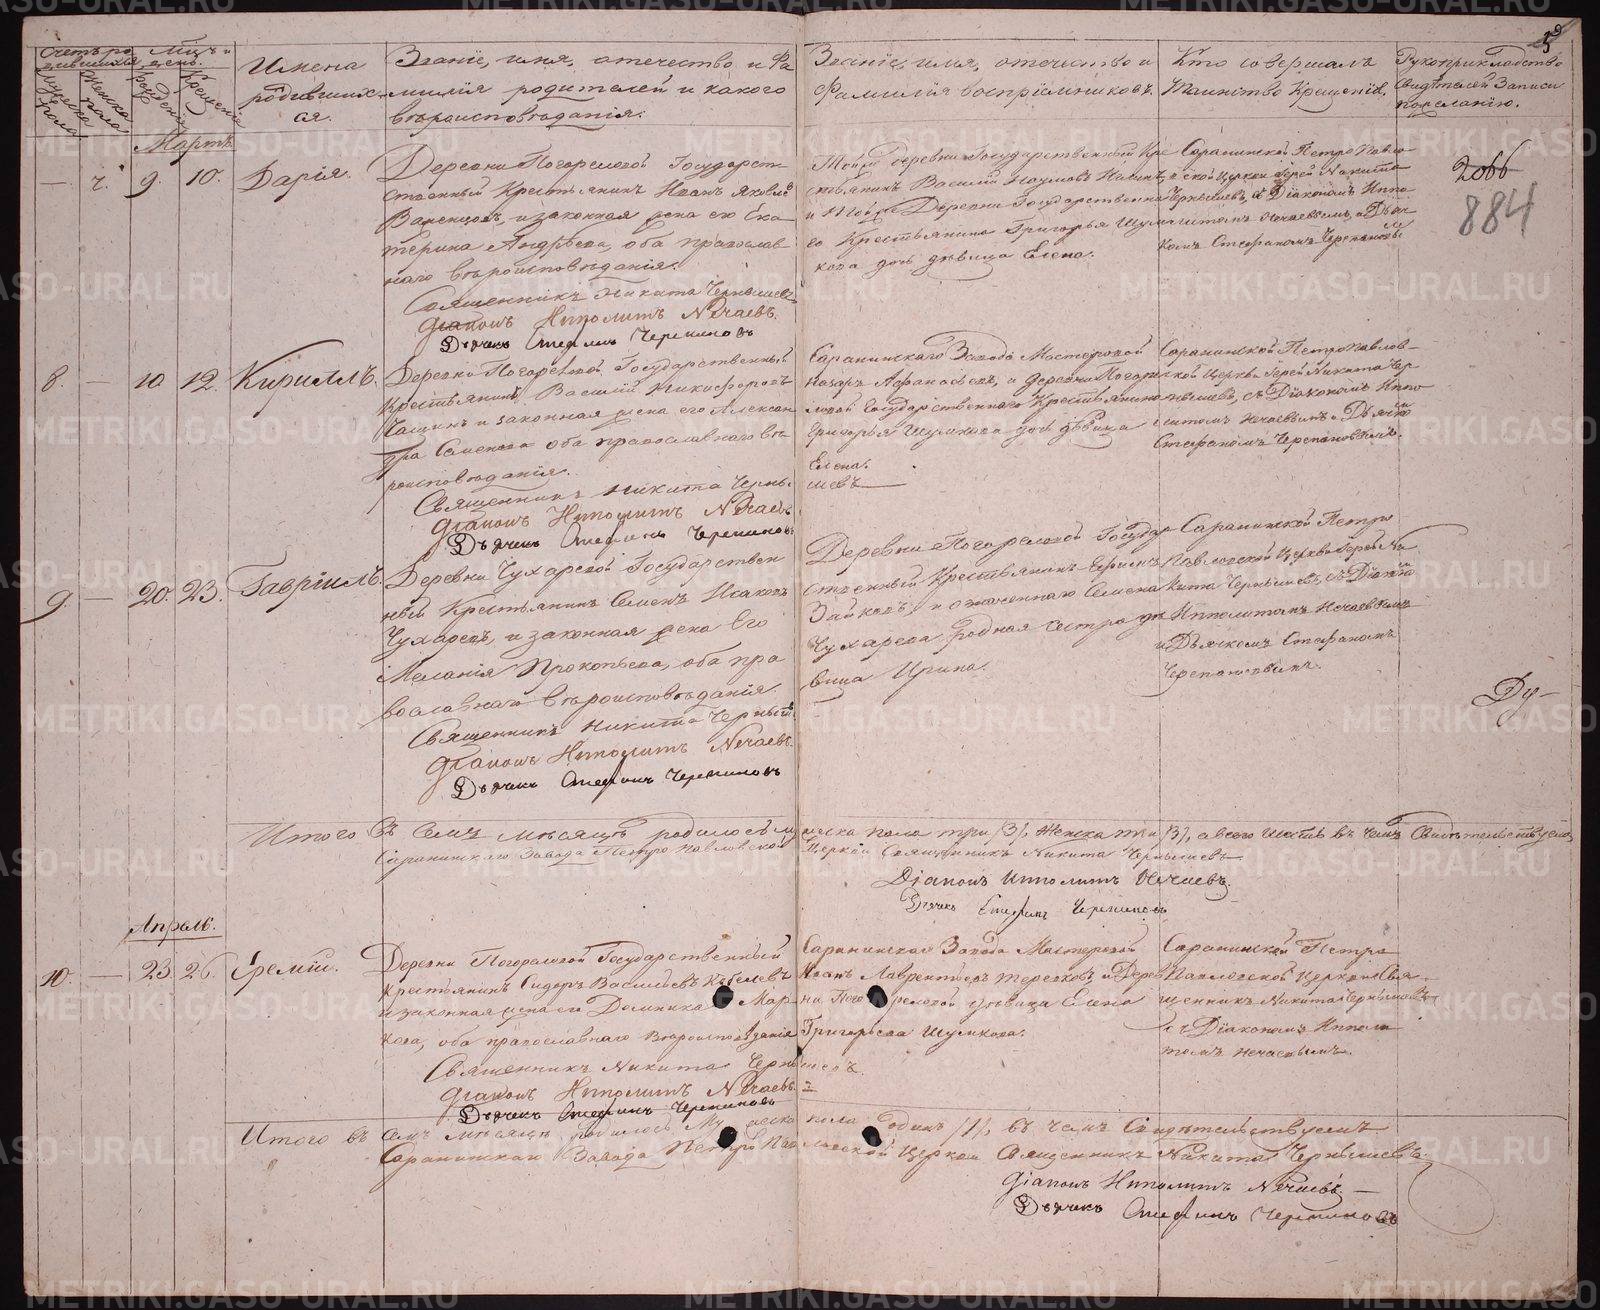 Счетъ родившихся
Мужеска пола
Женска пола
Мѣсяцъ и день
Рожденія
Крещенія
Имена
родивших-
ся.
Званіе, имя, отечество и Фа
милія родителей и какого
вѣроисповѣданія.
Званіе, имя, отечество и
Фамилія воспріемниковъ.
Кто совершалъ
Таинство Крещенія.
Рукоприкладство
свидѣтелей записи
по желанію.
Мартъ
— 7. 9. 10. Дарія.
Деревни Погорелой Государст-
венный Крестьянинъ Иванъ Яковле
и законная жена его Ека
терина Андрѣева, оба православ
наго вѣроисповѣданія.
Священникъ Никита Чернышевъ
Діаконъ Ипполитъ Нечаевъ.
Дьячекъ Стефанъ Черепановъ
Той же деревни Государственный Кре
стьянинъ Василій Наумовъ
и той же Деревни Государственна
го Крестьянина Григорья Шум
кова дочь дѣвица Елена.
Саранинской Петро Павло
вской церкви Іерей Никита
Чернышевъ, съ Діакономъ Иппо
литомъ Нечаевымъ, и Дьяч
комъ Стефаномъ Черепановымъ
2066
884
8. — 10 12. Кириллъ.
Деревни Погорелой Государственный
Крестьянинъ Василій Никифоровъ
и законная жена его Алексан
дра Семенова оба православнаго вѣ
роисповѣданія.
Священникъ Никита Черны
шевъ
Діаконъ Ипполитъ Нечаевъ
Дьячекъ Стефанъ Черепановъ
Саранинскаго Завода Мастеровой
Назаръ Афанасьевъ, и деревни Пого
релой Государственнаго Крестьянина
Григорья Шумкова дочь дѣвица
Елена.
Саранинской Петропавлов-
ской Церкви Іерей Никита Чер
нышевъ, съ Діакономъ Иппо
литомъ Нечаевымъ и Дьячкомъ
Стефаномъ Черепановымъ.
9. — 20. 23. Гавріилъ.
Деревни Чухаревой Государствен
ный Крестьянинъ Семенъ Исаковъ
Чухаревъ, и законная жена его
Меланія Прокопьева, оба пра
вославнаго вѣроисповѣданія.
Священникъ Никита Чернышевъ
Діаконъ Ипполитъ Нечаевъ.
Дьячекъ Стефанъ Черепановъ
Деревни Погорелой Государ
ственный Крестьянинъ Ефимъ
Зайковъ, и означеннаго Семена
Чухарева родная сестра дѣ
вица Ирина.
Саранинской Петро
Павловской Церкви Іерей Ни
кита Чернышевъ, съ Діакономъ
Ипполитомъ Нечаевымъ
и Дьячкомъ Стефаномъ
Черепановымъ.
Ду-
Итого въ семъ мѣсяцѣ родилось мужеска пола три /3/, женска три /3/, а всего шесть въ чемъ Свидѣтельствуемъ,
Саранинскаго Завода Петро Павловской Церкви Священникъ Никита Чернышевъ
Діаконъ Ипполитъ Нечаевъ.
Дьячекъ Стефанъ Черепановъ
Апрѣль.
10. — 23. 26. Еремій.
Деревни Погорелой Государственный
Крестьянинъ Сидоръ Васильевъ
и законная жена его Домника Мар-
кова, оба православнаго Вѣроисповѣданія
Священникъ Никита Чернышевъ.
Діаконъ Ипполитъ Нечаевъ.
Дьячекъ Стефанъ Черепановъ
Саранинскаго Завода Мастеровой
Иванъ Лаврентьевъ Тереховъ, и Дерев
ни Погорелой дѣвица Елена
Григорьева Шумкова.
Саранинской Петро
Павловской Церкви Свя
щенникъ Никита Чернышевъ
съ Діакономъ Иппол
томъ Нечаевымъ.
Итого въ семъ мѣсяцѣ родилось Мужеска пола Одинъ /1/, въ чемъ Свидѣтельствуемъ
Саранинскаго Завода Петро Павловской Церкви Священникъ Никита Чернышевъ.
Діаконъ Ипполитъ Нечаевъ.
Дьячекъ Стефанъ Черепановъ
METRIKI.GASO-URAL.RU